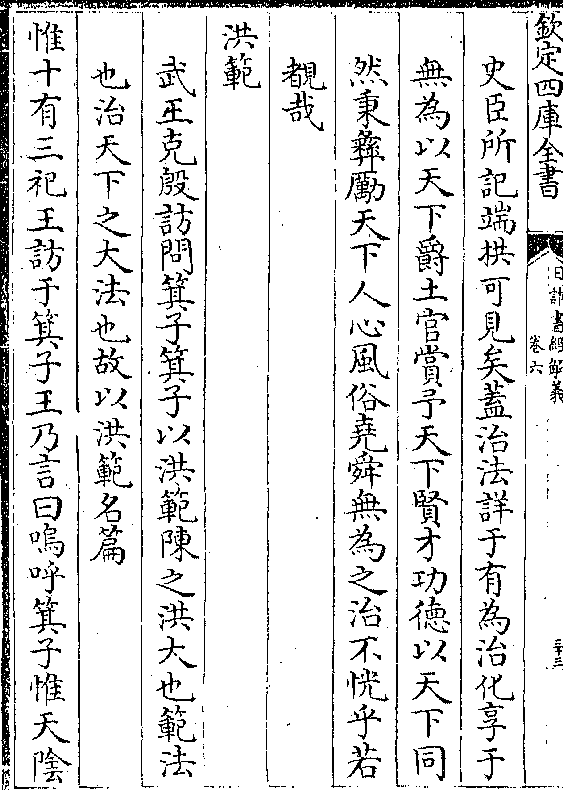 欽定四庫全書
日講書經解義
卷六
三十三
史臣所記端拱可見矣蓋治法詳于有為治化享于
無為以天下爵土官賞予天下賢才功德以天下同
然秉彞勵天下人心風俗堯舜無為之治不恍乎若
覩哉
洪範
武王克殷訪問箕子箕子以洪範陳之洪大也範法
也治天下之大法也故以洪範名篇
惟十有三祀王訪于箕子王乃言曰嗚呼箕子惟天陰